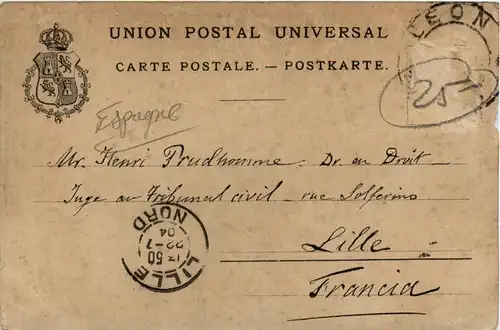 UNION POSTAL UNIVERSAL
CARTE POSTALE. — POSTKARTE.
LEON
25
Espagne
Mr. Henri Prudhomme Dr. en Droit
Juge au Tribunal civil rue Solferino
Lille
Francia
LILLE
13 50
22-7
04
NORD